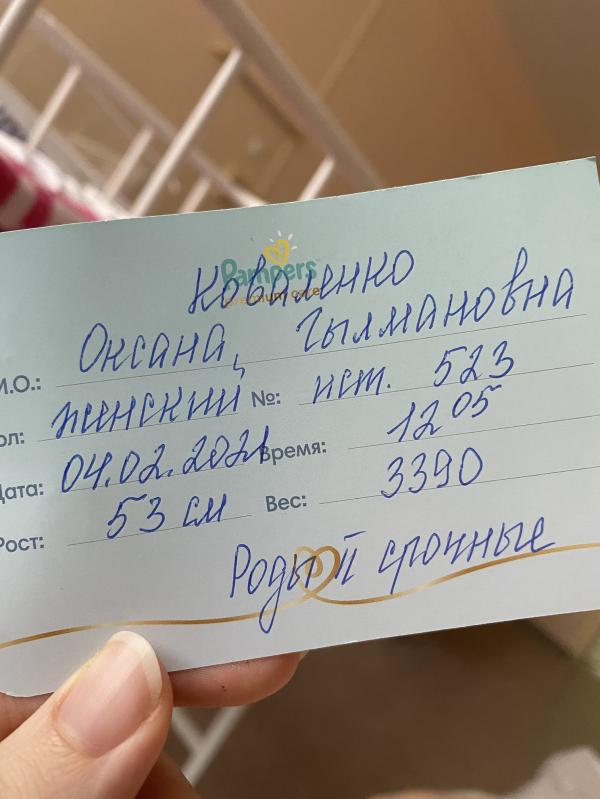 Pampers
premium care
Коваленко
И.О.: Оксана Гылмановна
ол: женский №: ист. 523
Дата: 04.02.2021 Время: 12 05
Рост: 53 см Вес: 3390
Роды II срочные